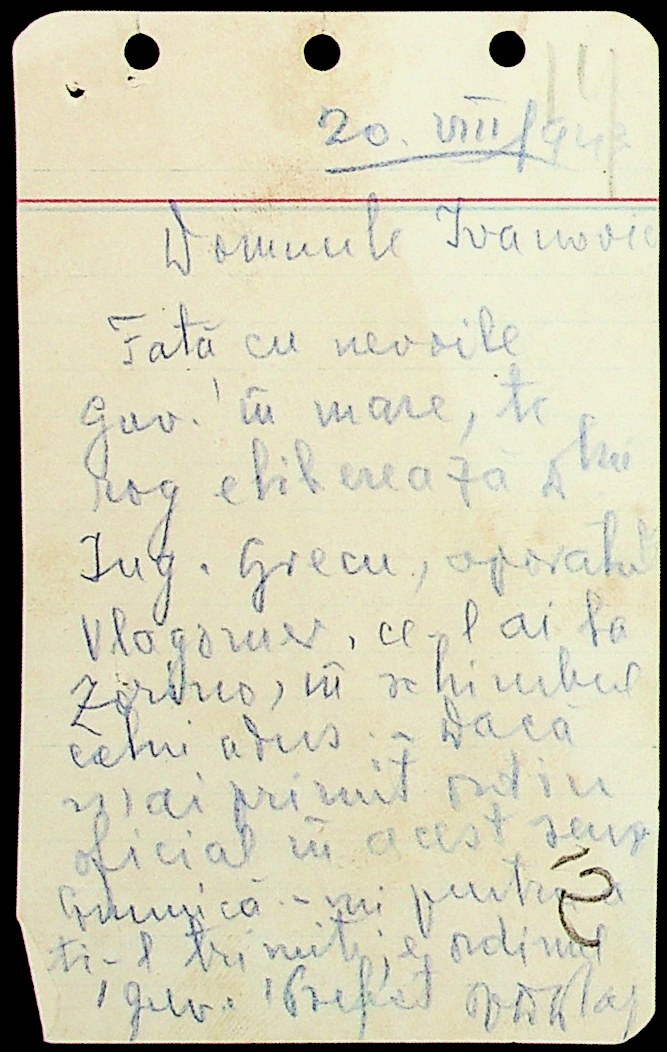 20. VIII 194
Domnule Ivanovic
Față cu nevoile
Guv. în mare, te
rog eliberează Dlui
Ing. Grecu, aparatul
Vlagomer, ce-l ai la
Zorino, în schimbul
celui adus. - Dacă
n'ai primit ordin
oficial în acest sens
Comunică-mi pentru a
ti-l trimite, e ordinul
Guv. Prefect